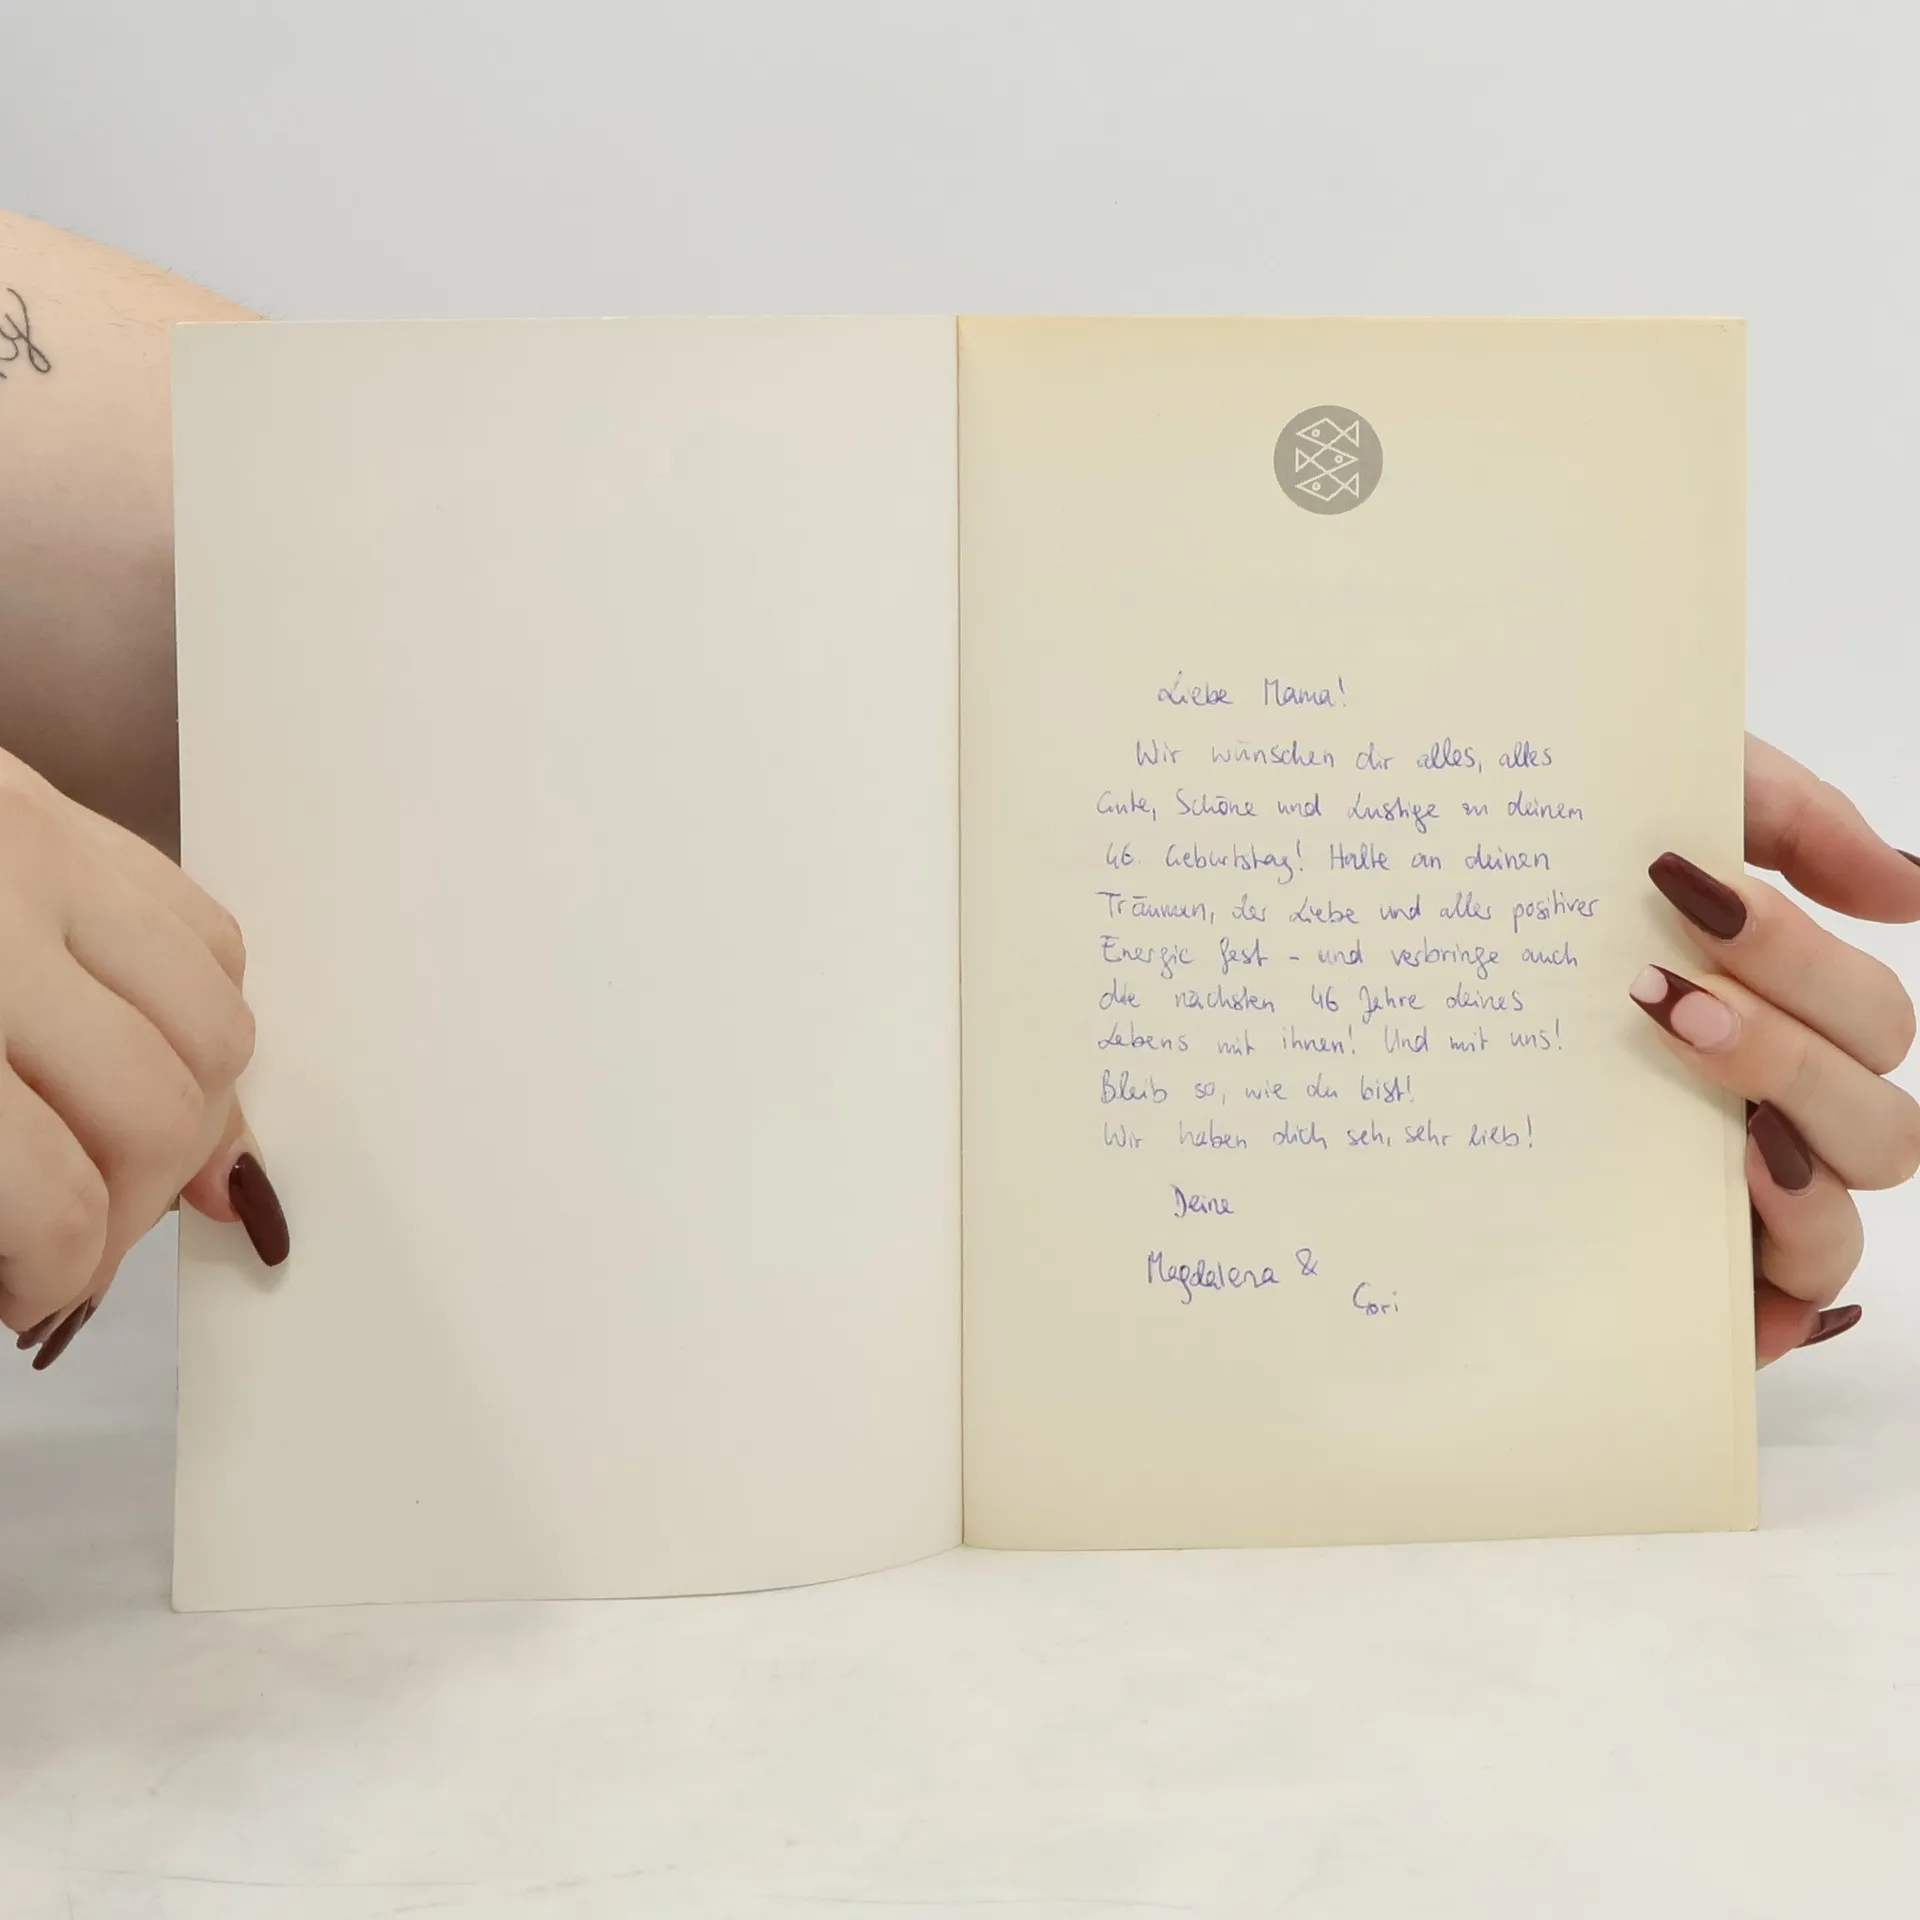 Liebe Mama!
Wir wünschen dir alles, alles
Gute, Schöne und Lustige zu deinem
46. Geburtstag! Halte an deinen
Träumen, der Liebe und aller positiver
Energie fest - und verbringe auch
die nächsten 46 Jahre deines
Lebens mit ihnen! Und mit uns!
Bleib so, wie du bist!
Wir haben dich seh, sehr lieb!
Deine
Magdalena &
Cori